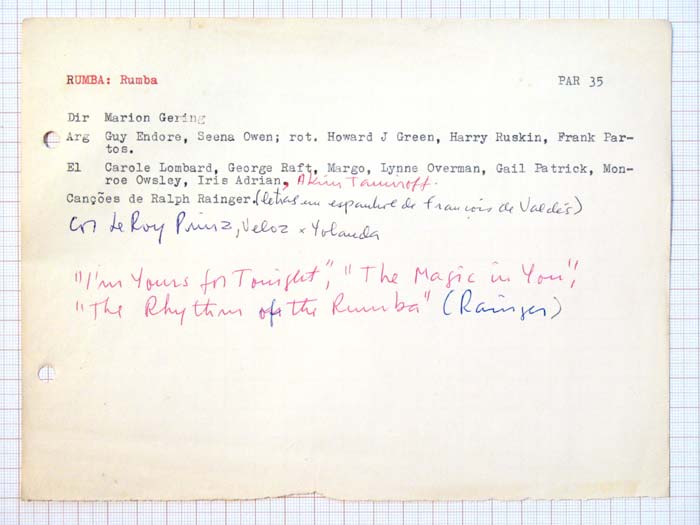 RUMBA: Rumba PAR 35
Dir Marion Gering
Arg Guy Endore, Seena Owen; rot. Howard J Green, Harry Ruskin, Frank Par-
tos.
El Carole Lombard, George Raft, Margo, Lynne Overman, Gail Patrick, Mon-
roe Owsley, Iris Adrian, Akim Tamiroff.
Canções de Ralph Rainger. (letras em espanhol de François de Valdés)
Cor LeRoy Prinz, Veloz x Yolanda
"I'm Yours for Tonight", "The Magic in You",
"The Rhythm of the Rumba" (Rainger)